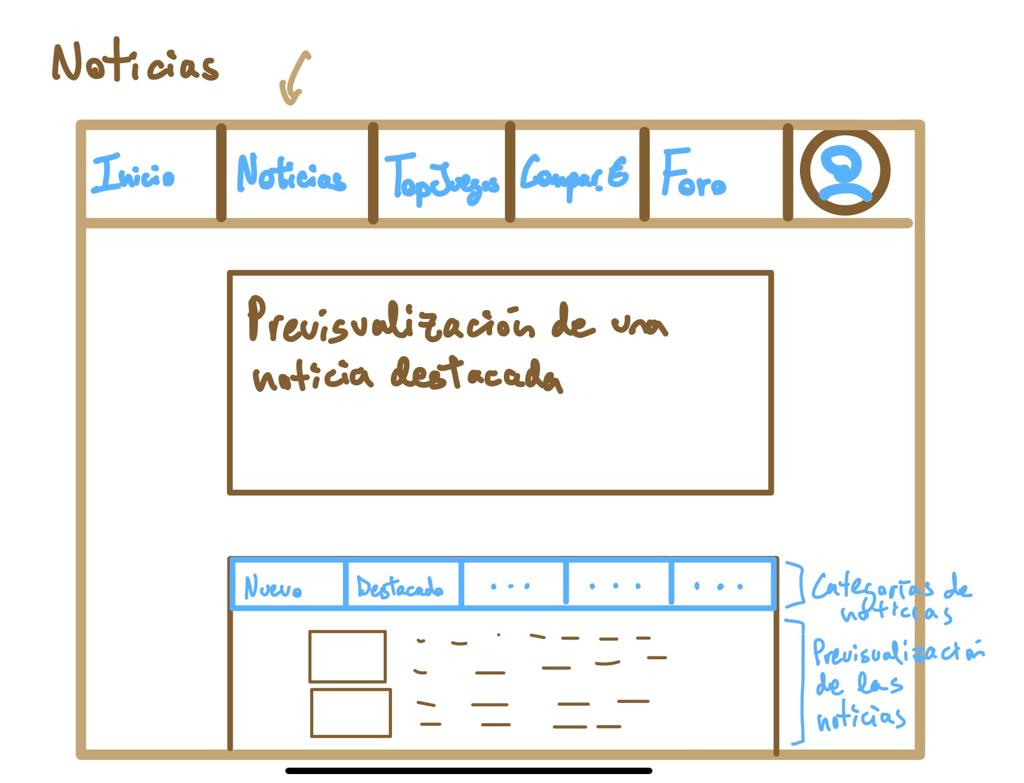 Noticias
Inicio
Noticias
TopJuegos
Compar. €
Foro
Previsualización de una
noticia destacada
Nuevo
Destacado
...
...
...
Categorías de
noticias
Previsualización
de las
noticias